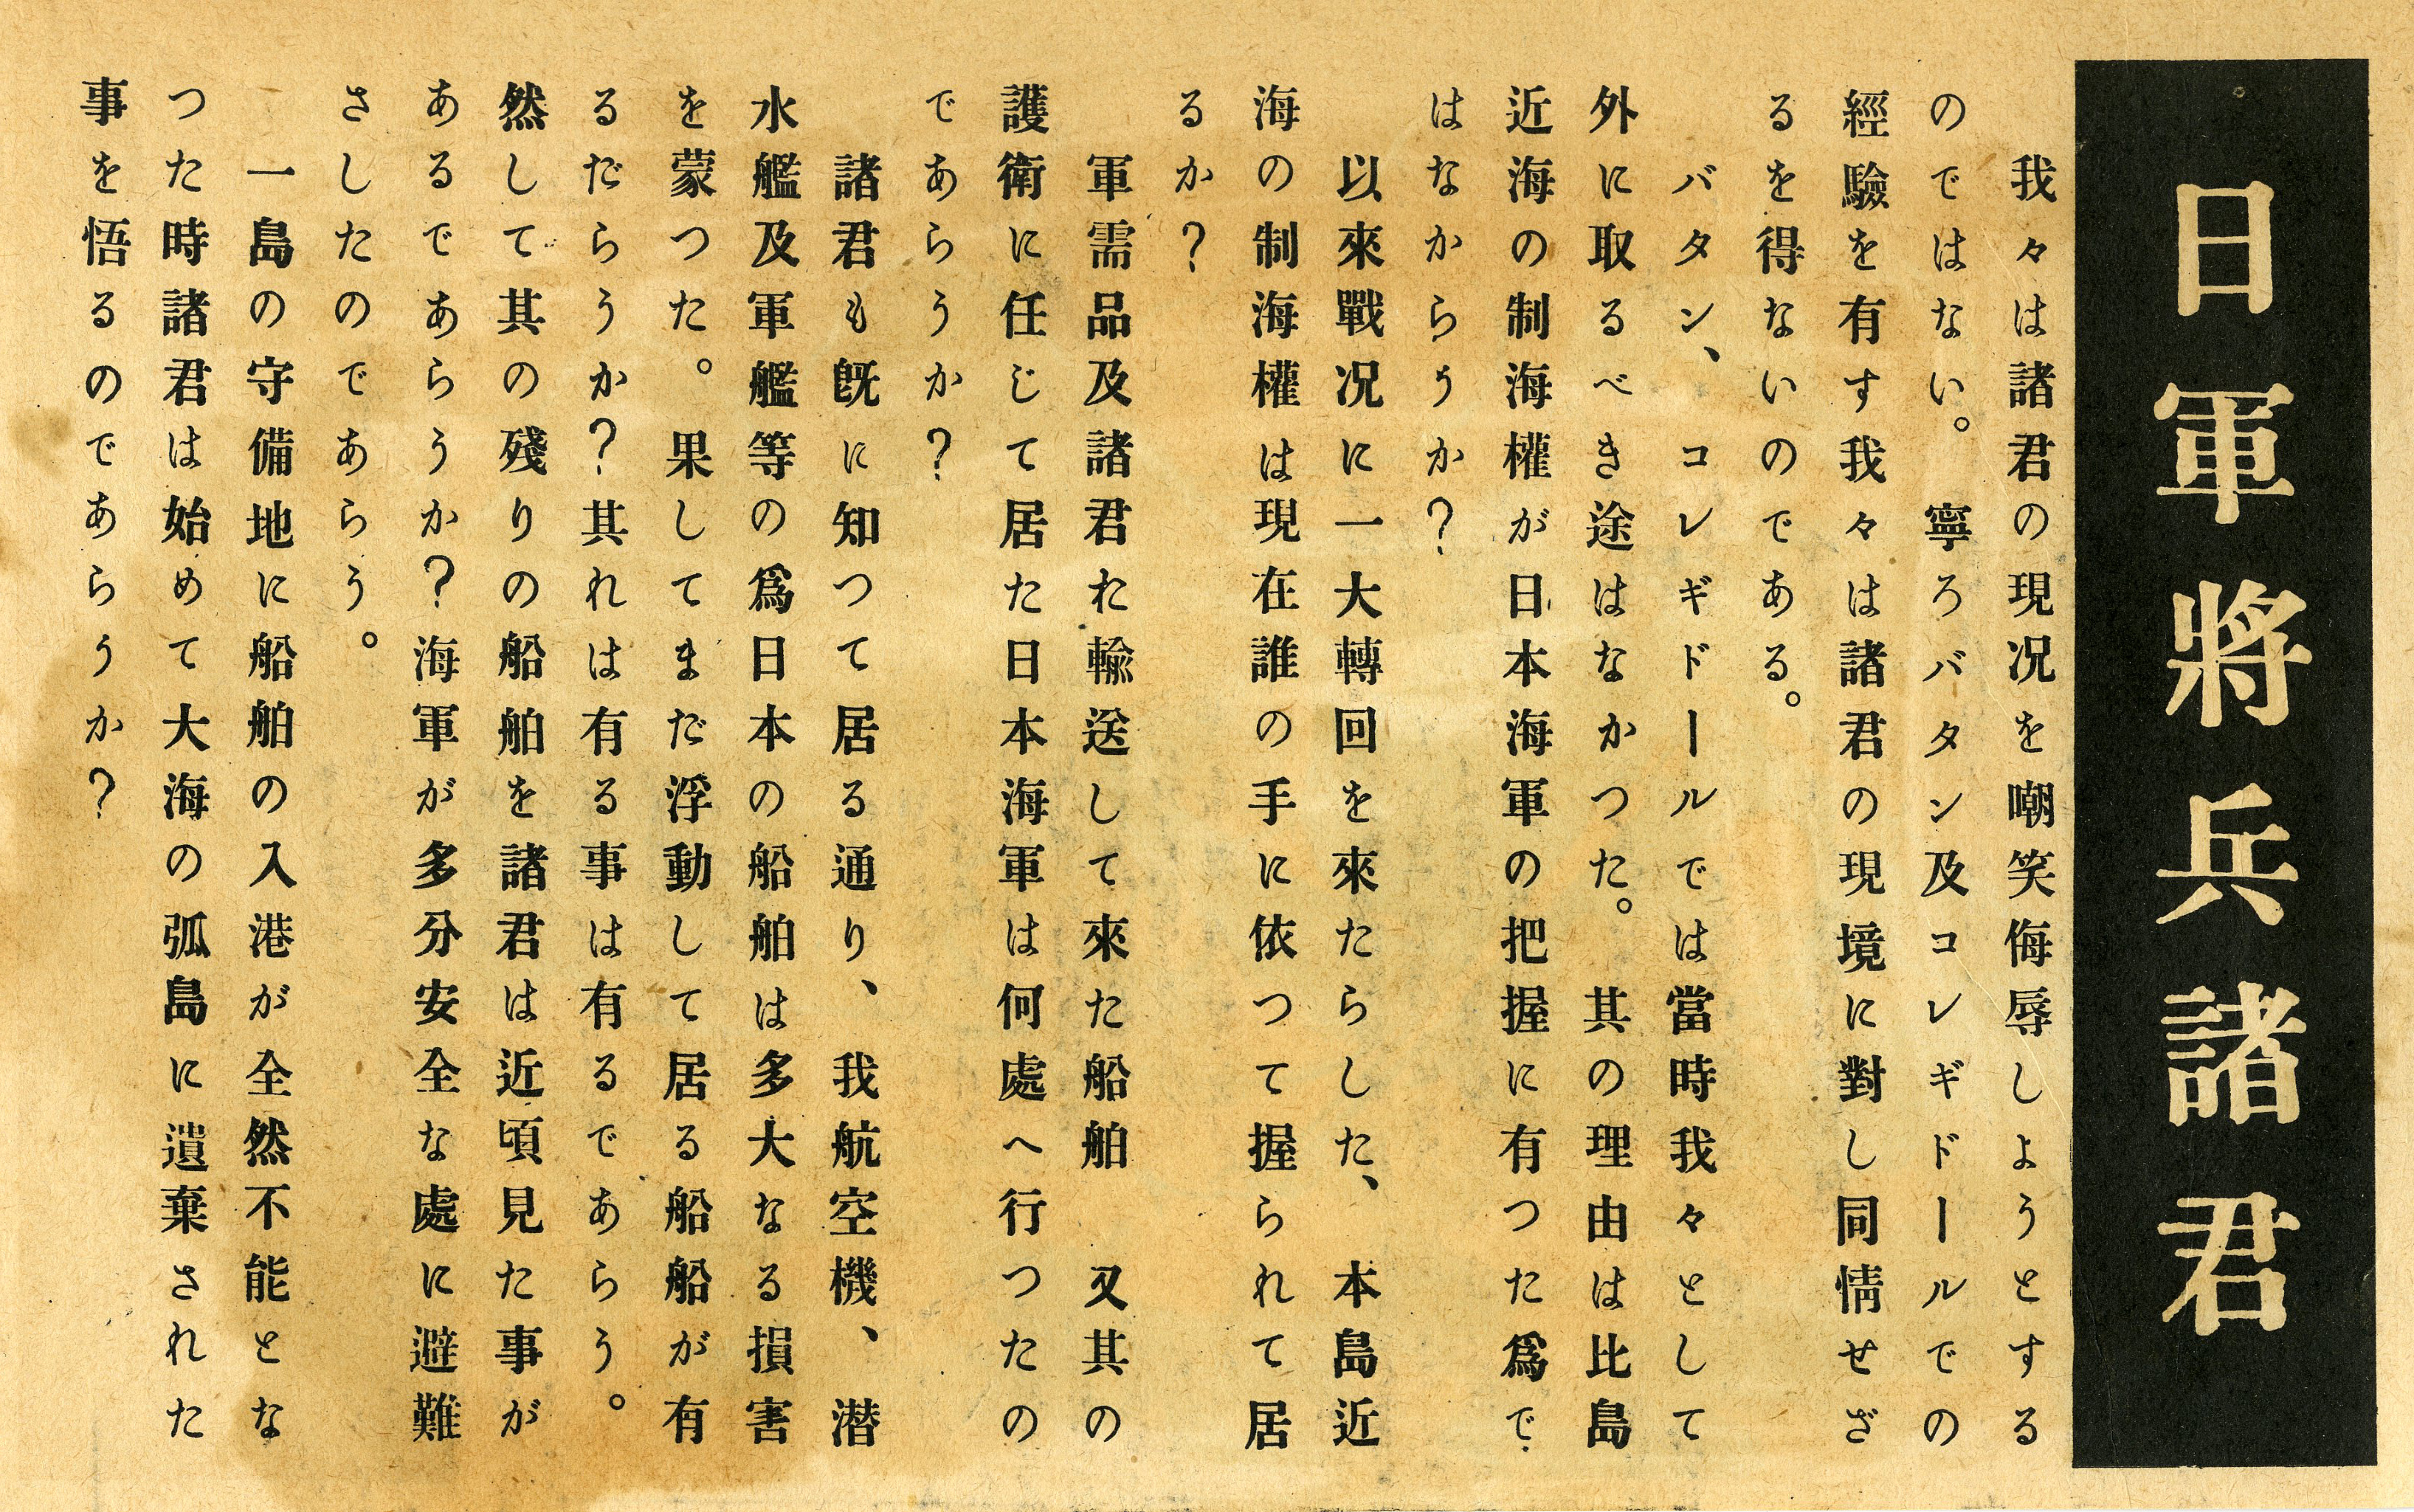 日軍將兵諸君
我々は諸君の現況を嘲笑侮辱しようとする
のではない。寧ろバタン及コレギドールでの
經驗を有す我々は諸君の現境に對し同情せざ
るを得ないのである。
バタン、コレギドールでは當時我々として
外に取るべき途はなかつた。其の理由は比島
近海の制海權が日本海軍の把握に有つた爲で
はなからうか？
以來戰况に一大轉回を來たらした、本島近
海の制海權は現在誰の手に依つて握られて居
るか？
軍需品及諸君た輸送して來た船舶　又其の
護衛に任じて居た日本海軍は何處へ行つたの
であらうか？
諸君も既に知つて居る通り、我航空機、潜
水艦及軍艦等の爲日本の船舶は多大なる損害
を蒙つた。果してまだ浮動して居る船船が有
るだらうか？其れは有る事は有るであらう。
然して其の殘りの船舶を諸君は近頃見た事が
あるであらうか？海軍が多分安全な處に避難
さしたのであらう。
一島の守備地に船舶の入港が全然不能とな
つた時諸君は始めて大海の弧島に遺棄された
事を悟るのであらうか？